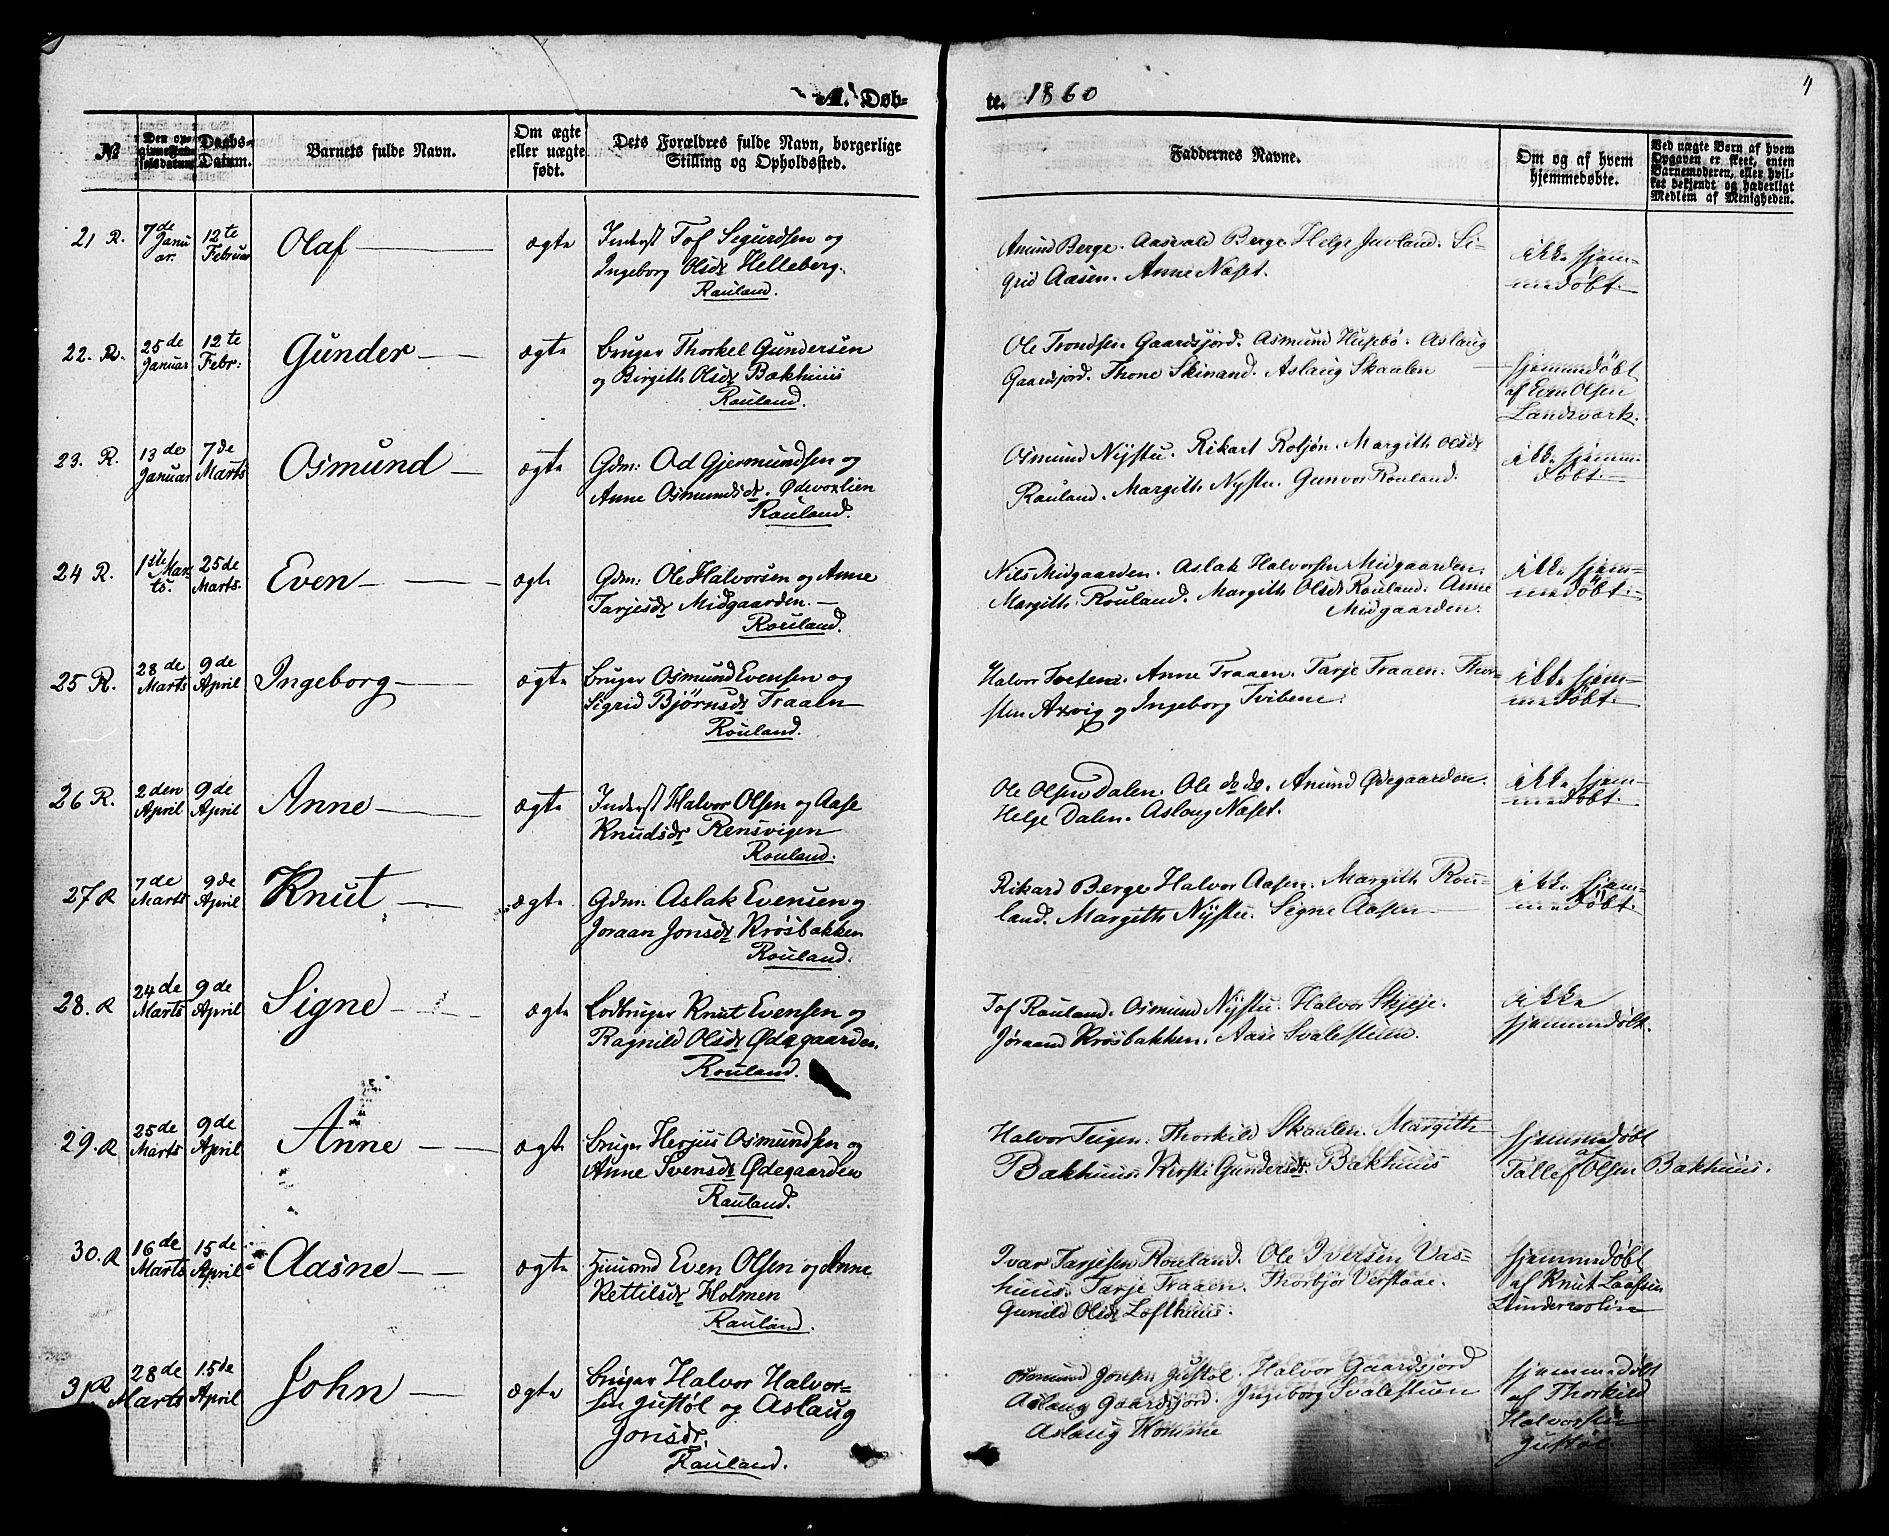 A. Døb-
te. 1860
№
Den opgivne Fødselsdatum.
Daabs-Datum.
Barnets fulde Navn.
Om ægte eller uægte født.
Dets Forældres fulde Navn, borgerlige Stilling og Opholdssted.
Faddernes Navne.
Om og af hvem hjemmedøbte.
Ved uægte Barn af hvem Opgaven er skeet, enten Barnemoderen, eller hvilket bekjendt og hæderligt Medlem af Menigheden.
21 R. 7de Januar. 12te Februar Olaf ægte Inderst Tof Segurdsen og
Ingeborg Olsdr Helleberg.
Rauland.
Amund Berge. Aasvald Berge. Helge Juvland. Si-
grid Aasen. Anne Næset.
ikke hjem-
medøbt.
22. R. 25de Januar 12te Febr: Gunder ægte Bruger Thorkel Gundersen
og Birgith Olsdr Bakhuus
Rauland.
Ole Trondsen Gaardsjord. Asmund Husebø. Aslaug
Gaardsjord. Thone Skinand. Aslaug Skaalen
hjemmedøbt
af Even Olsen
Landsværk.
23. R. 13de Januar 7de Marts Osmund ægte Gdm: Od Gjermundsen og
Anne Osmundsdr. Ødevoxlien
Rauland.
Osmund Nystu. Rikart Roljøn. Margith Olsdr
Rauland. Margith Nystu. Gunvor Rouland.
ikke hjemm-
døbt.
24 R. 1ste Marts. 25de Marts. Even ægte Gdm: Ole Halvorsen og Anne
Tarjesdr Midgaarden.
Rouland.
Nils Midgaarden. Aslak Halvorsen Midgaarden.
Margith Rouland. Margith Olsdr Rouland. Anne
Midgaarden.
ikke hjem-
medøbt.
25 R. 28de Marts 9de April Ingeborg ægte Bruger Osmund Evensen og
Sigrid Bjørnsdr Traaen
Rouland.
Halvor Tveten. Anne Traaen. Tarje Traaen. Thor-
sten Axvig og Ingeborg Tvibene.
ikke hjem-
medøbt.
26 R. 2den April 9de April Anne ægte Inderst Halvor Olsen og Aase
Knudsdr Rensvigen
Rouland.
Ole Olsen Dalen. Ole do do. Amund Ødegaarden.
Helge Dalen. Aslaug Næset.
ikke hjem-
medøbt.
27 R 7de Marts 9de April Knut ægte Gdm: Aslak Evensen og
Joraan Jonsdr Krosbakken
Rouland.
Rikard Berge Halvor Aasen. Margith Rou-
land. Margith Nystu. Signe Aasen
ikke hjem-
medøbt.
28. R 24de Marts 9de April Signe ægte Lodbruger Knut Evensen og
Ragnild Olsdr Ødegaarden.
Rouland.
Tof Rauland. Osmund Nystu. Halvor Skjeje.
Jøraand Krosbakken. Aase Svalestuen.
ikke
hjemmedøbt.
29. R 25de Marts 9de April Anne ægte Bruger Herjus Osmundsen og
Anne Svensdr Ødegaarden
Rauland.
Halvor Teigen. Thorkild Skaalen. Margith
Bakhuus. Kirsti Gundersdr. Bakhuus
hjemmedøbt
af
Tallef Olsen Bakhuus.
30. R 16de Marts 15de April Aasne ægte Huusmd Even Olsen og Anne
Kettilsdr Holmen
Rauland.
Ivar Tarjesen Rouland. Ole Iversen Vas-
huus. Tarje Traaen. Thorbjør Verstaae.
Gunild Olsdr Lofthuus.
hjemmedøbt
af Knut Laafsen
31 R 28de Marts 15de April John ægte Bruger Halvor Halvor-
sen Gustøl og Aslaug
Jonsdr.
Rauland.
Osmund Jonsen Gustøl. Halvor Gaardsjord
Aslaug Gaardsjord. Ingeborg Svalestuen
Aslaug Homme
hjemmedøbt
af Thorkild
Halvorsen
Gustøl.